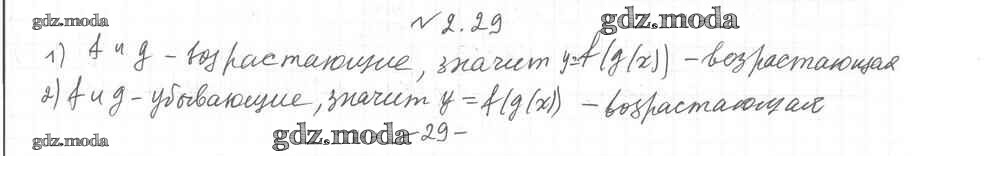 gdz.moda № 2.29 gdz.moda
1) f и g - возрастающие, значит y=f(g(x)) - возрастающая
2) f и g - убывающие, значит y = f(g(x)) - возрастающая
gdz.moda gdz.moda -29-